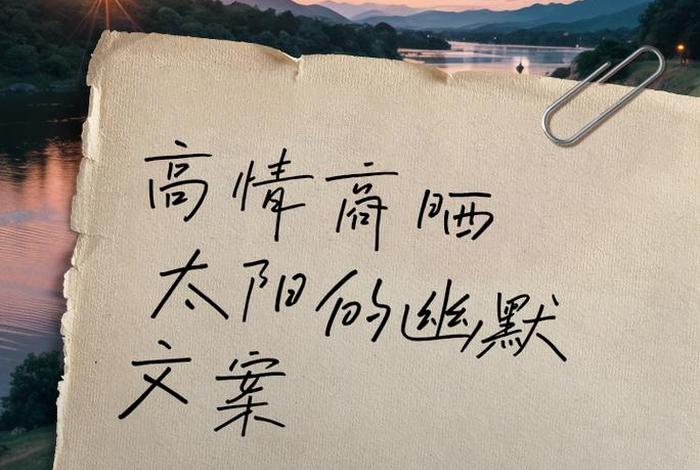 高情商晒
太阳的幽默
文案